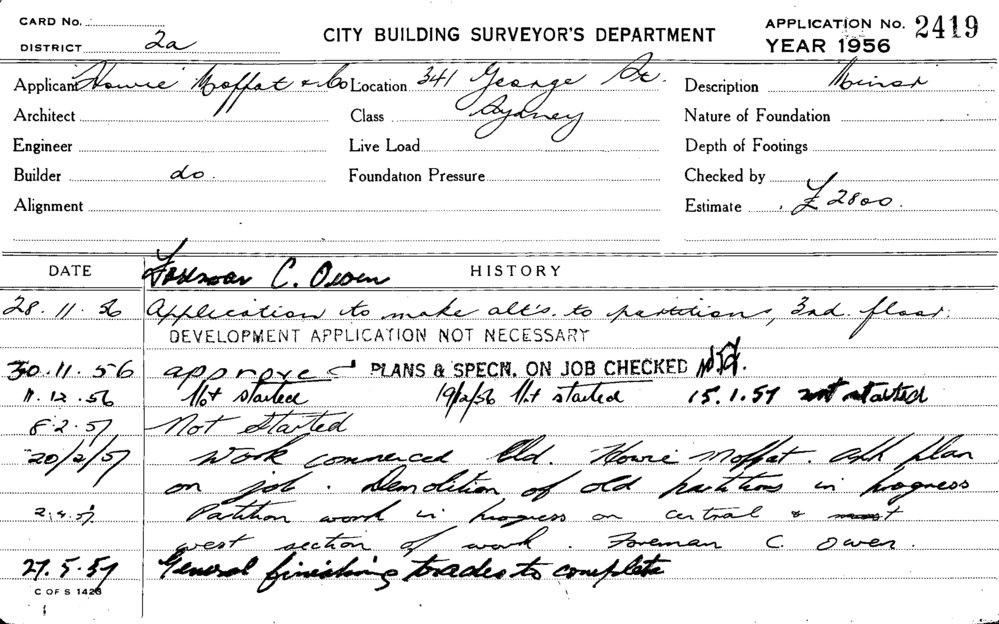 CARD No.
DISTRICT 2a
CITY BUILDING SURVEYOR'S DEPARTMENT
APPLICATION No. 2419
YEAR 1956
Applicant Howie Moffat & Co Location 341 George St. Description Minor
Architect Class Sydney Nature of Foundation
Engineer Live Load Depth of Footings
Builder do. Foundation Pressure Checked by
Alignment Estimate £2800.
DATE Foreman C. Owen HISTORY
28.11.56 Application to make alt's. to partitions, 3rd. floor.
DEVELOPMENT APPLICATION NOT NECESSARY
30.11.56 approved PLANS & SPECN. ON JOB CHECKED
11.12.56 Not started 19/12/56 Not started 15.1.57 not started
8.2.57 Not Started
20/2/57 Work commenced Bld. Howie Moffat. App plan
on job. Demolition of old partitions in progress
2.4.57 Partition work in progress on central &
west section of work. Foreman C. Owen.
27.5.57 General finishing trades to complete
C OF S 1426